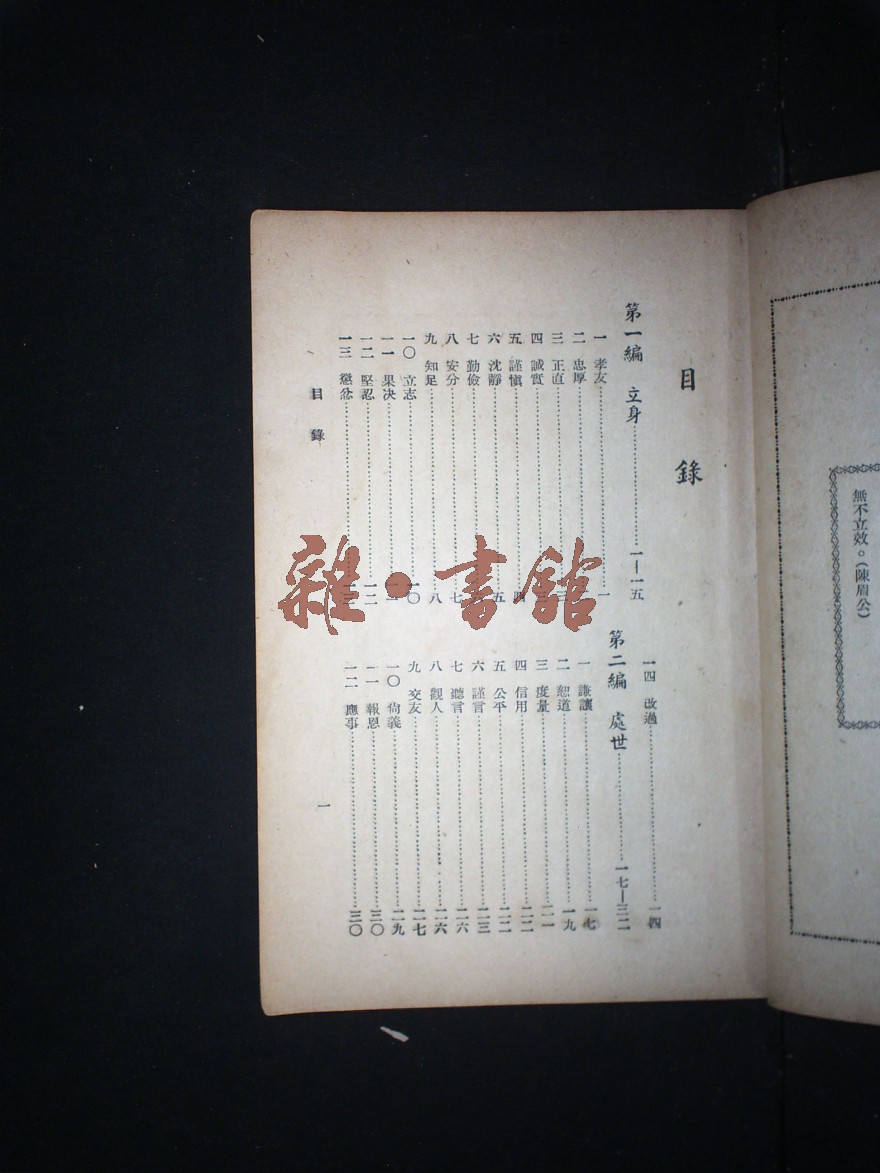 無不立效。(陳眉公)
目錄
第一編 立身……一—一五
一 孝友……一
二 忠厚……
三 正直……三
四 誠實……
五 謹愼……四
六 沈靜……五
七 勤儉……
八 安分……七
九 知足……八
一〇 立志……一〇
一一 果决……一一
一二 堅忍……一二
一三 懲忿……
一四 改過……一四
第二編 處世……一七—三二
一 謙讓……一七
二 恕道……一九
三 度量……二一
四 信用……二二
五 公平……二二
六 謹言……二三
七 聽言……二六
八 觀人……二六
九 交友……二七
一〇 尙義……二九
一一 報恩……三〇
一二 應事……三〇
目錄
一
雜·書館